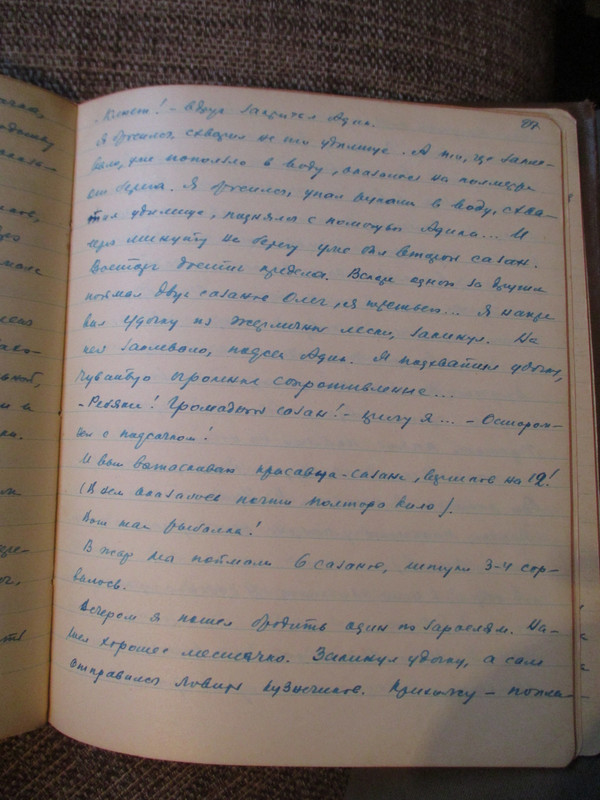 87
- Клюет! - вдруг закричал Адик.
Я бросился схватил не то удилище. А то, где запле-
вало, уже поползло в воду, оказалось на полметра
от берега. Я бросился, упал руками в воду, схва-
тил удилище, поднялся с помощью Адика... И
через минуту на берегу уже был второй сазан.
Восторг достиг предела. Вскоре один за другим
поймал двух сазанов Олег, я третьего... Я
вил удочку из жерличной лески, закинул. На
ней заклевало, подсек Адик. Я подхватил удочку,
чувствую огромное сопротивление...
- Ребята! Громадный сазан! - кричу я... - Осторож-
ней с подсачком!
И вот вытаскиваю красавца-сазана, на 12!
(В нем оказалось почти полтора кило).
Вот так рыбалка!
В жару мы поймали 6 сазанов, штуки 3-4 сор-
валось.
Вечером я пошел бродить один по зарослям. На-
шел хорошее местечко. Закинул удочку, а сам
отправился ловить кузнечиков. Прихожу - попла-